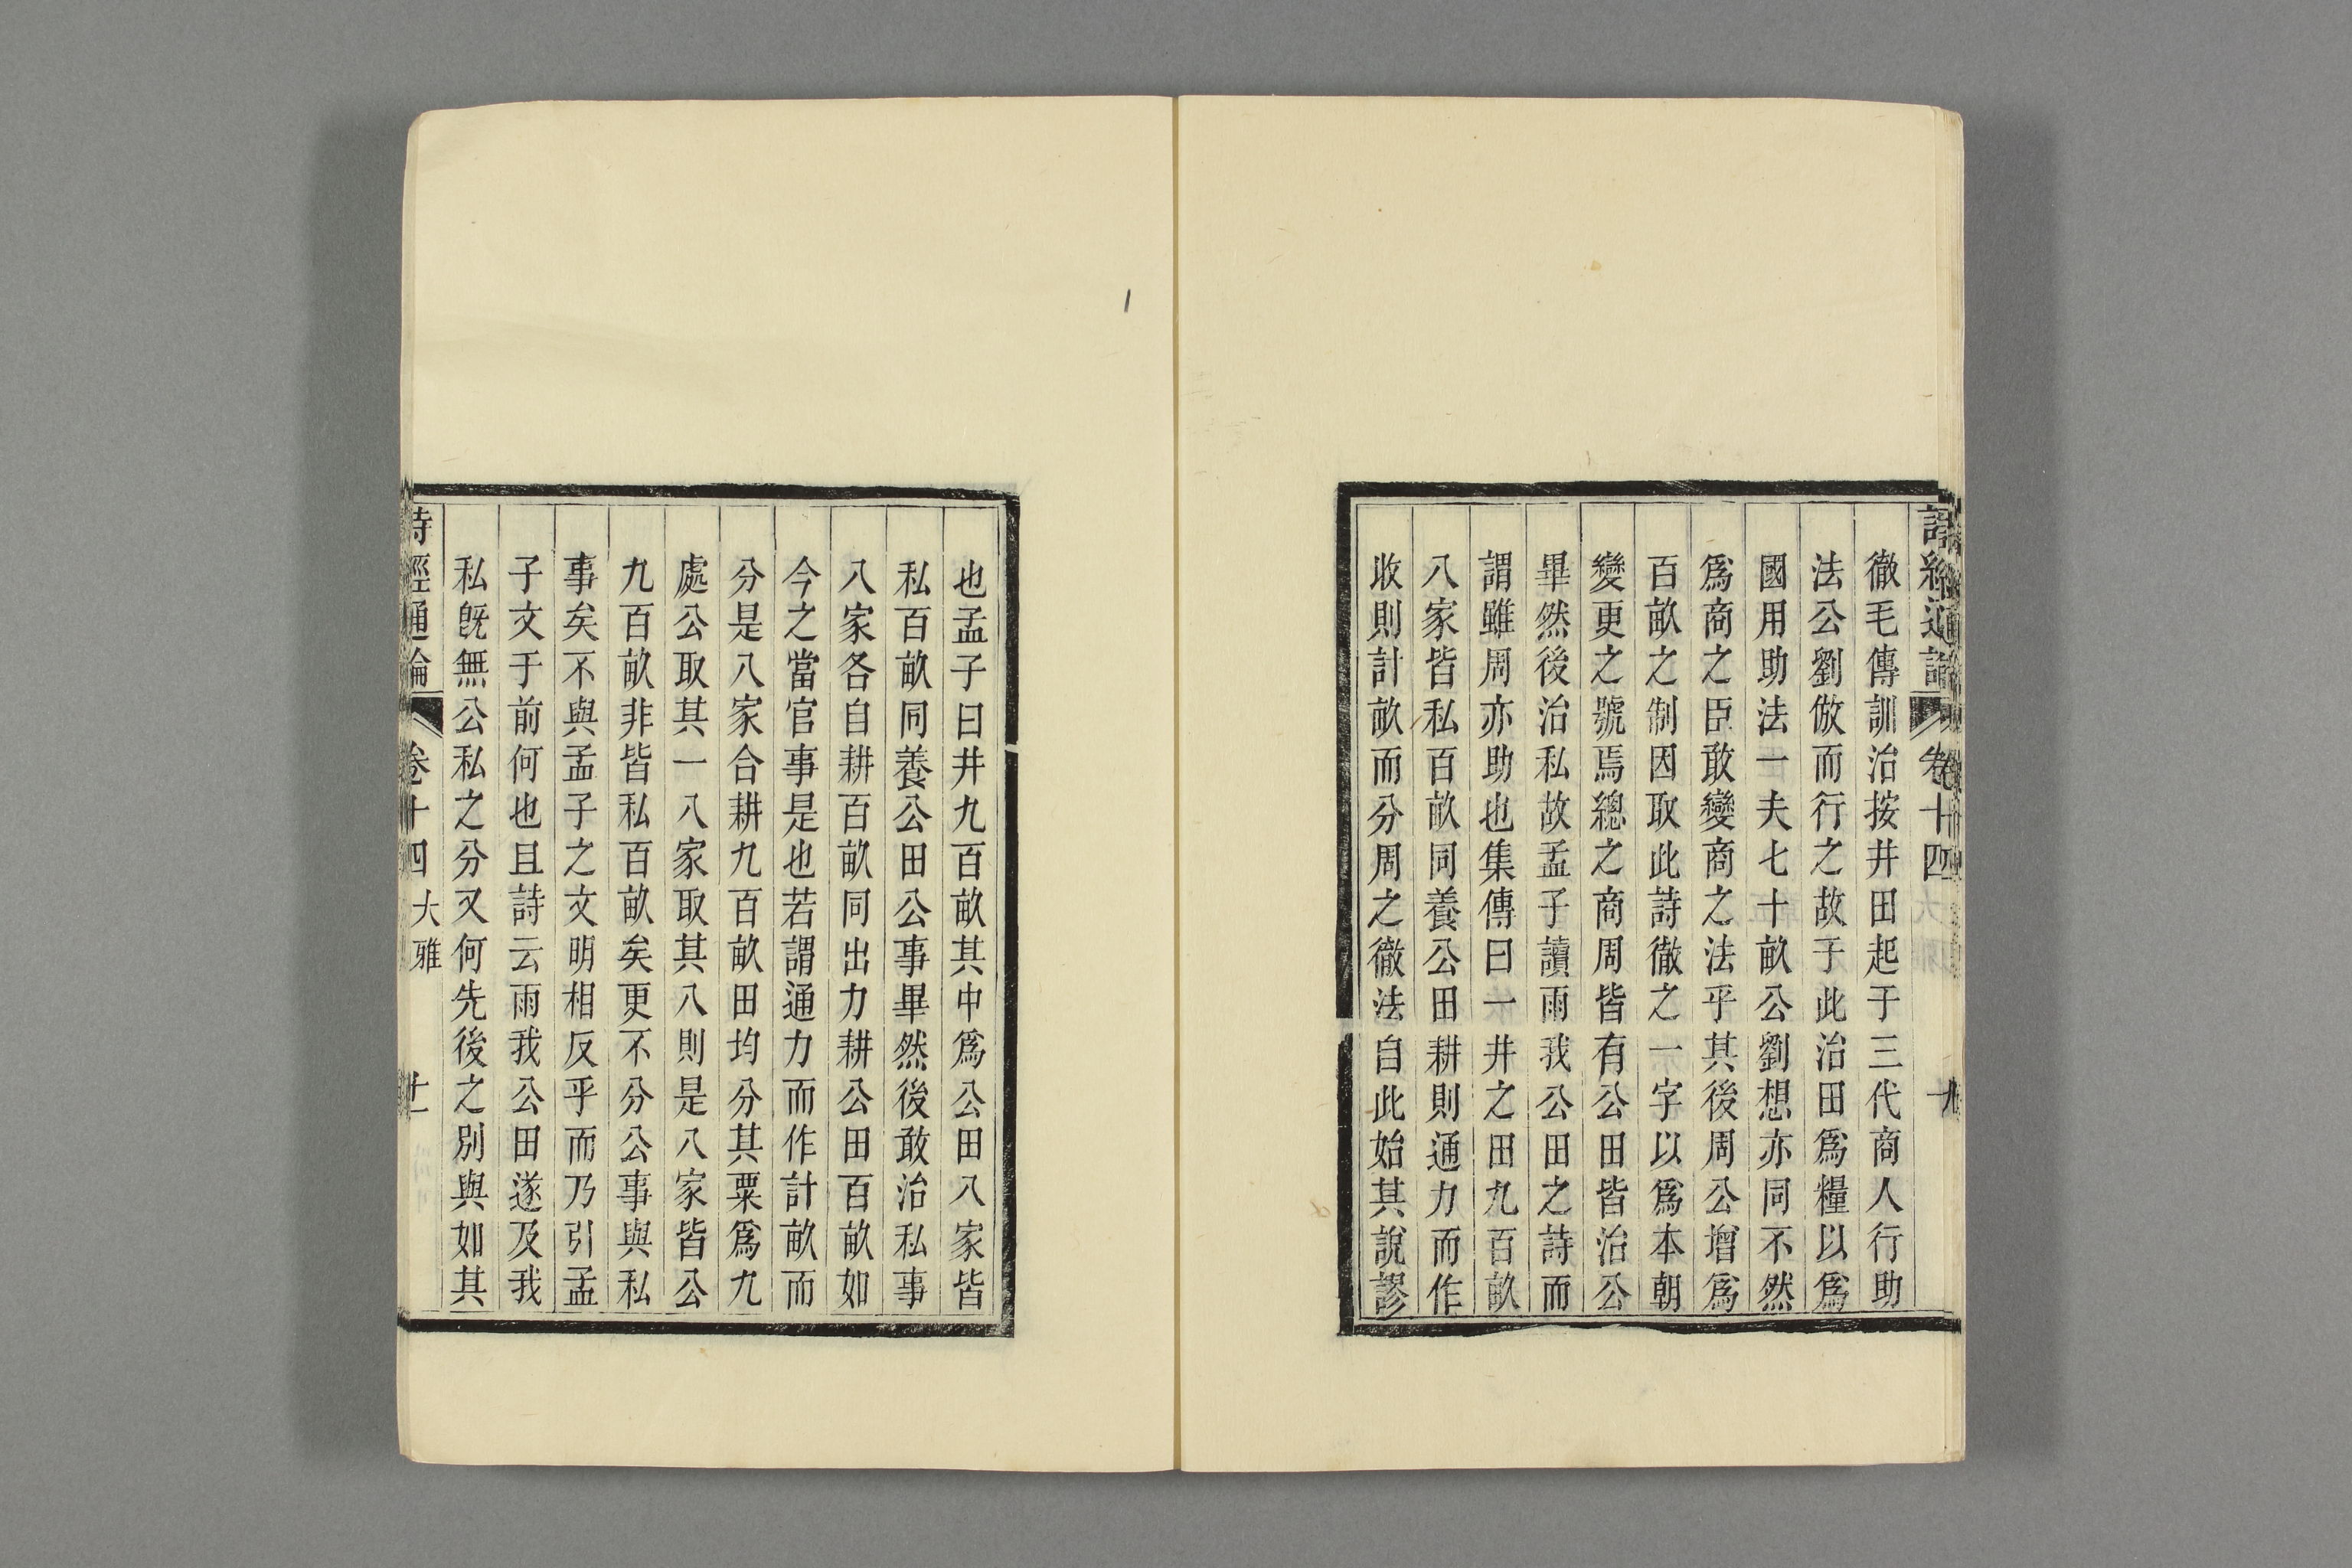 徹毛傳訓治按井田起于三代商人行助
法公劉倣而行之故于此治田爲糧以爲
國用助法一夫七十畝公劉想亦同不然
爲商之臣敢變商之法乎其後周公增爲
百畝之制因取此詩徹之一字以爲本朝
變更之號焉總之商周皆有公田皆治公
畢然後治私故孟子讀雨我公田之詩而
謂雖周亦助也集傳曰一井之田九百畝
八家皆私百畝同養公田耕則通力而作
收則計畝而分周之徹法自此始其說謬
也孟子曰井九百畝其中爲公田八家皆
私百畝同養公田公事畢然後敢治私事
八家各自耕百畝同出力耕公田百畝如
今之當官事是也若謂通力而作計畝而
分是八家合耕九百畝田均分其粟爲九
處公取其一八家取其八則是八家皆公
九百畝非皆私百畝矣更不分公事與私
事矣不與孟子之文明相反乎而乃引孟
子文于前何也且詩云雨我公田遂及我
私旣無公私之分又何先後之別與如其
詩經通論 卷十四 大雅